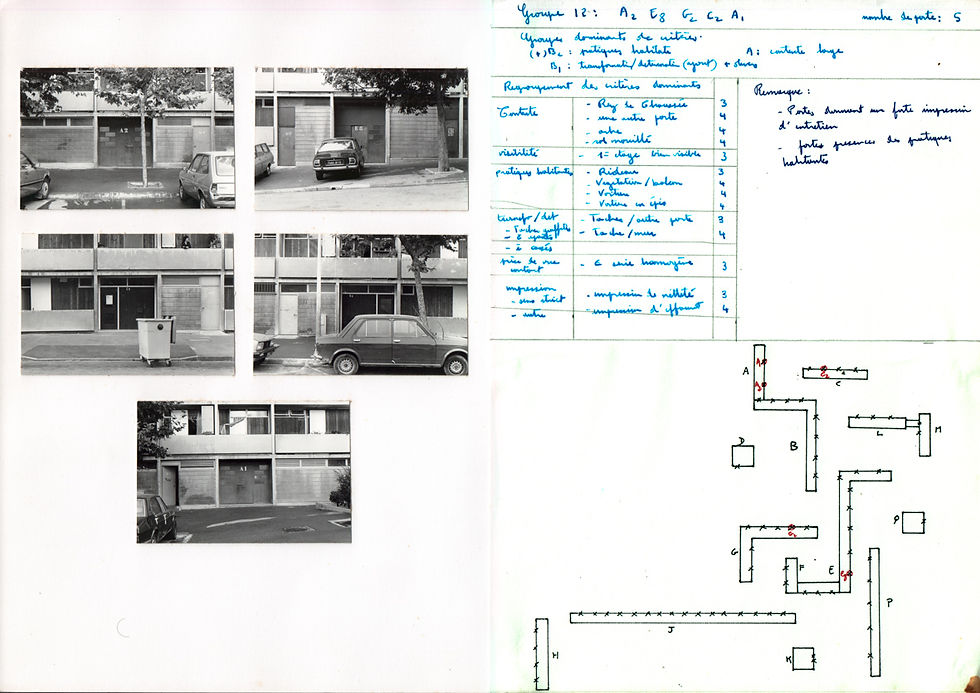 A2
E8
A1
Groupe 12 : A2 E8 G2 C2 A1
nombre de porte : 5
Groupes dominants de critères.
(+) B2 : pratiques habitats
A : contexte large
B1 : transformation/détérioration (ajout) + divers
Regroupement des critères dominants
Contexte
- Rez de Chaussée 3
- une autre porte 4
- arbre 4
- sol mouillé 4
visibilité - 1er étage bien visible 3
pratiques habitantes - Rideau 3
- Végétation/balcon 4
- Voiture 4
- Voiture en épis 4
transf/det - Taches/autre porte 3
- Tache/mur 4
- 2 cassés
prise de vue - C série homogène 3
contexte
impression - impression de netteté 3
- sens strict
- autre - impression d'effacement 4
Remarque :
- Portes donnent une forte impression
d'entretien
- fortes présences des pratiques
habitantes
A
A1
A2
C2
C
L
M
D
B
G2
G
F
E
E8
P
J
H
K